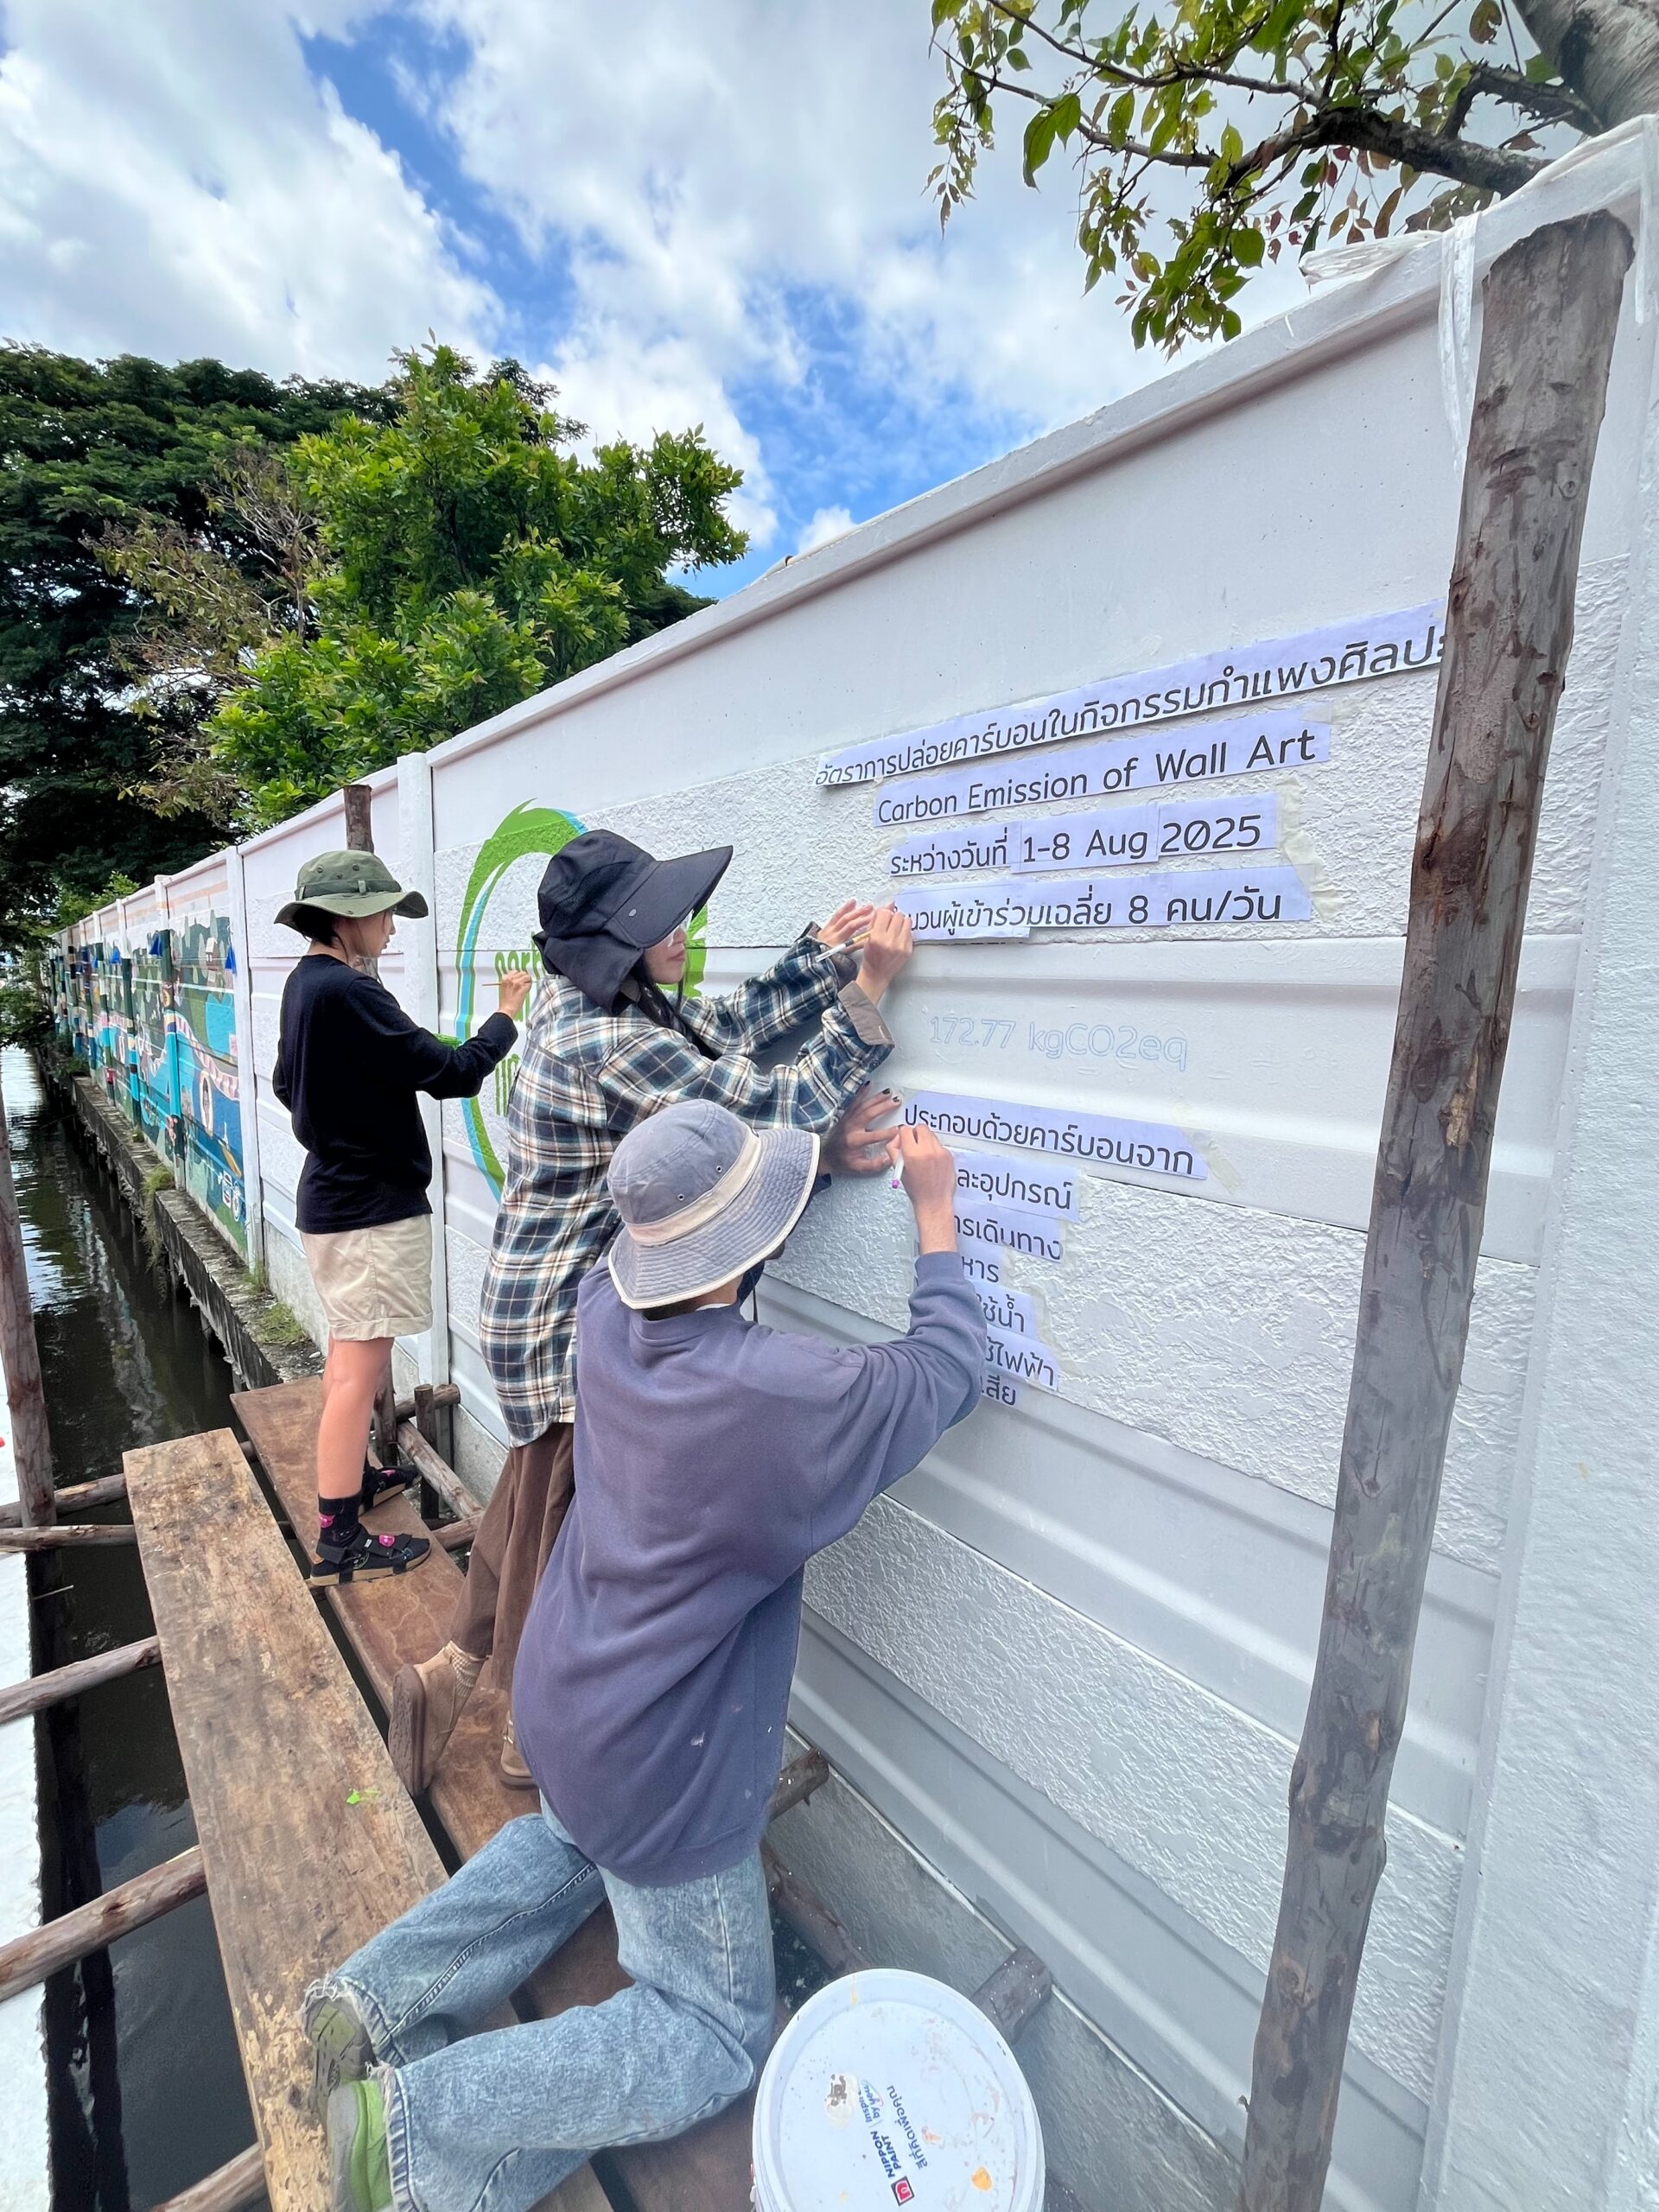 อัตราการปล่อยคาร์บอนในกิจกรรมกำแพงศิลปะ
Carbon Emission of Wall Art
ระหว่างวันที่ 1-8 Aug 2025
นวนผู้เข้าร่วมเฉลี่ย 8 คน/วัน
172.77 kgCO2eq
ประกอบด้วยคาร์บอนจาก
ละอุปกรณ์
ารเดินทาง
หาร
ใช้น้ำ
ช้ไฟฟ้า
เสีย
carb
NIPPON PAINT
สีที่คิดเพื่อคุณ